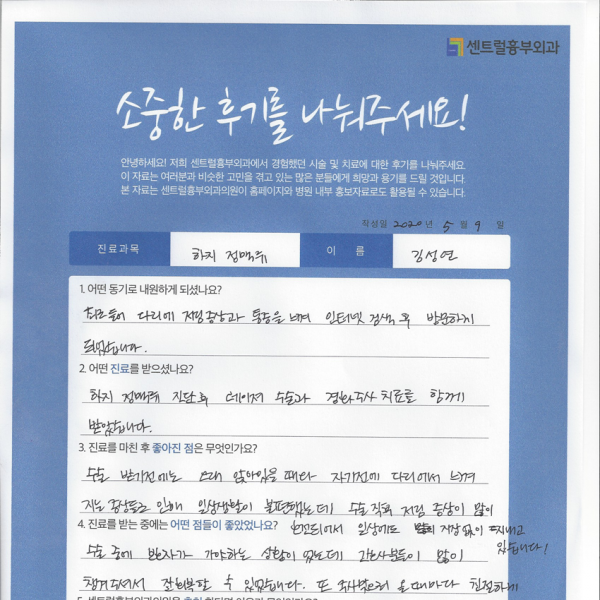 센트럴흉부외과
소중한 후기를 나눠주세요!
안녕하세요! 저희 센트럴흉부외과에서 경험했던 시술 및 치료에 대한 후기를 나눠주세요
이 자료는 여러분과 비슷한 고민을 겪고 있는 많은 분들에게 희망과 용기를 드릴 것입니다.
본 자료는 센트럴흉부외과의원이 홈페이지와 병원 내부 홍보자료로도 활용될 수 있습니다.
작성일 2020 년 5 월 9 일
진료과목 하지 정맥류 이 름 김성연
1. 어떤 동기로 내원하게 되셨나요?
최근들어 다리에 저림증상과 통증을 느껴 인터넷 검색 후 방문하게
되었습니다.
2. 어떤 진료를 받으셨나요?
하지 정맥류 진단 후 레이저 수술과 경화주사 치료를 함께
받았습니다.
3. 진료를 마친 후 좋아진 점은 무엇인가요?
수술 받기전에는 오래 앉아있을 때나 자기전에 다리에서 느껴
지는 증상들로 인해 일상생활이 불편했는데 수술 직후 저림 증상이 많이
4. 진료를 받는 중에는 어떤 점들이 좋았었나요? 일상에도 지장 없이 지내고
있습니다!
수술 중에 환자가 상황이 있는데 간호사분들이 많이
챙겨주셔서 잘 회복할 수 있었습니다. 또 올때마다 친절하게